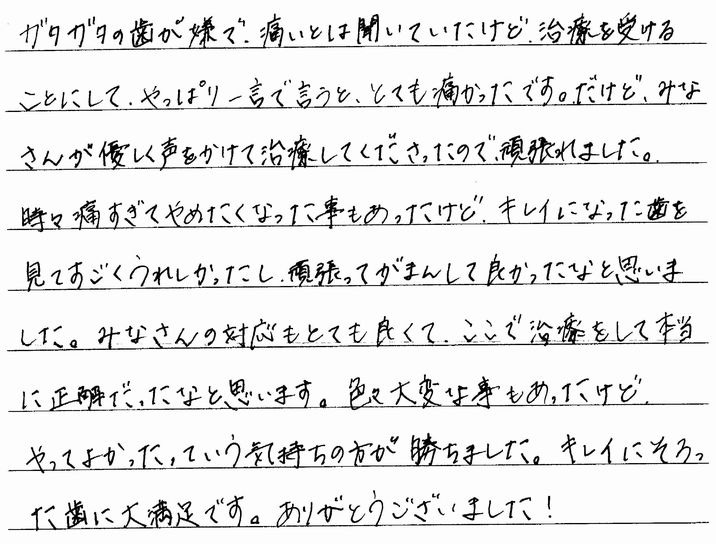 ガタガタの歯が嫌で、痛いとは聞いていたけど、治療を受ける
ことにして、やっぱり一言で言うと、とても痛かったです。だけど、みな
さんが優しく声をかけて治療してくださったので、頑張れました。
時々痛すぎてやめたくなった事もあったけど、キレイになった歯を
見てすごくうれしかったし、頑張ってがまんして良かったなと思いま
した。みなさんの対応もとても良くて、ここで治療をして本当
に正解だったなと思います。色々大変な事もあったけど、
やってよかったっていう気持ちの方が勝ちました。キレイにそろっ
た歯に大満足です。ありがとうございました！